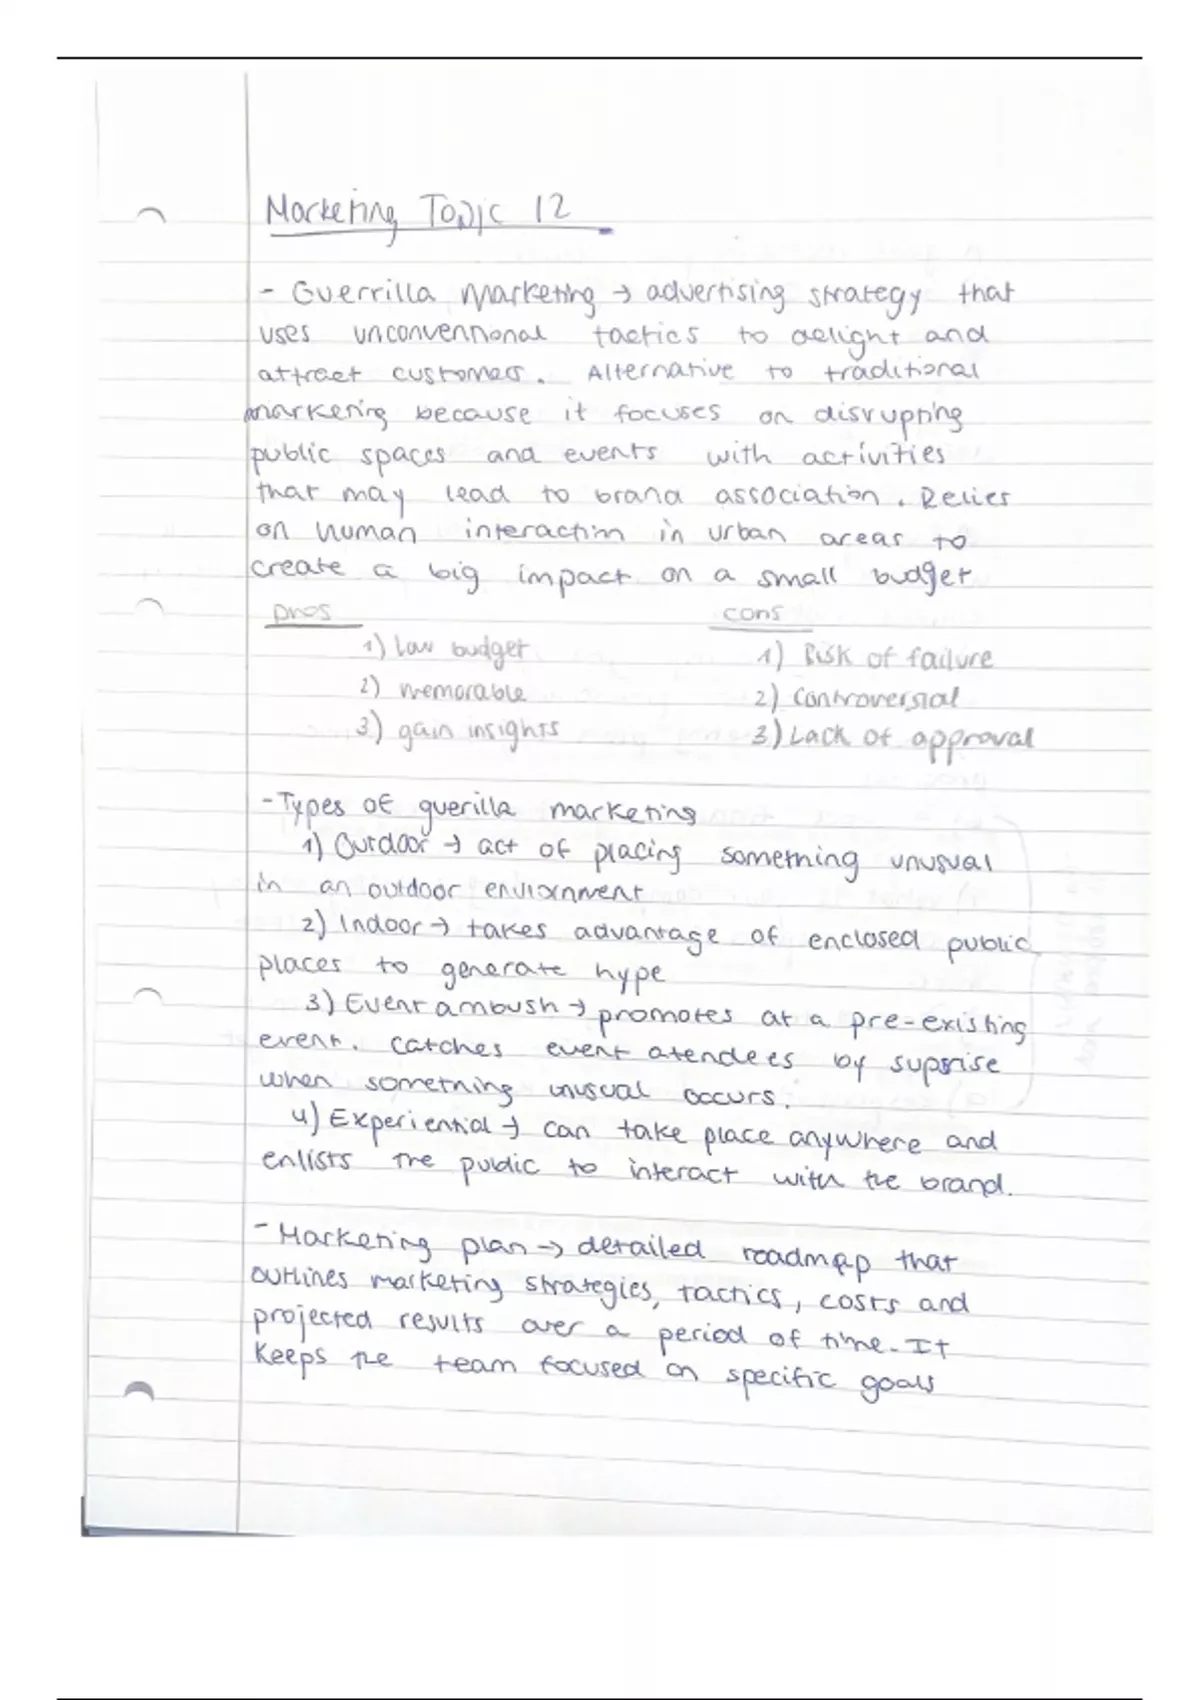 Marketing Topic 12
- Guerrilla marketing → advertising strategy that
uses unconventional tactics to delight and
attract customers. Alternative to traditional
marketing because it focuses on disrupting
public spaces and events with activities
that may lead to brand association. Relies
on human interaction in urban areas to
create a big impact on a small budget
pros cons
1) low budget 1) Risk of failure
2) memorable 2) Controversial
3) gain insights 3) Lack of approval
- Types of guerilla marketing
1) Outdoor → act of placing something unusual
in an outdoor enviornment
2) Indoor → takes advantage of enclosed public
places to generate hype
3) Event ambush → promotes at a pre-existing
event. Catches event atendees by suprise
when something unusual occurs.
4) Experiential → can take place anywhere and
enlists the public to interact with the brand.
- Marketing plan → detailed roadmap that
outlines marketing strategies, tactics, costs and
projected results over a period of time. It
keeps the team focused on specific goals